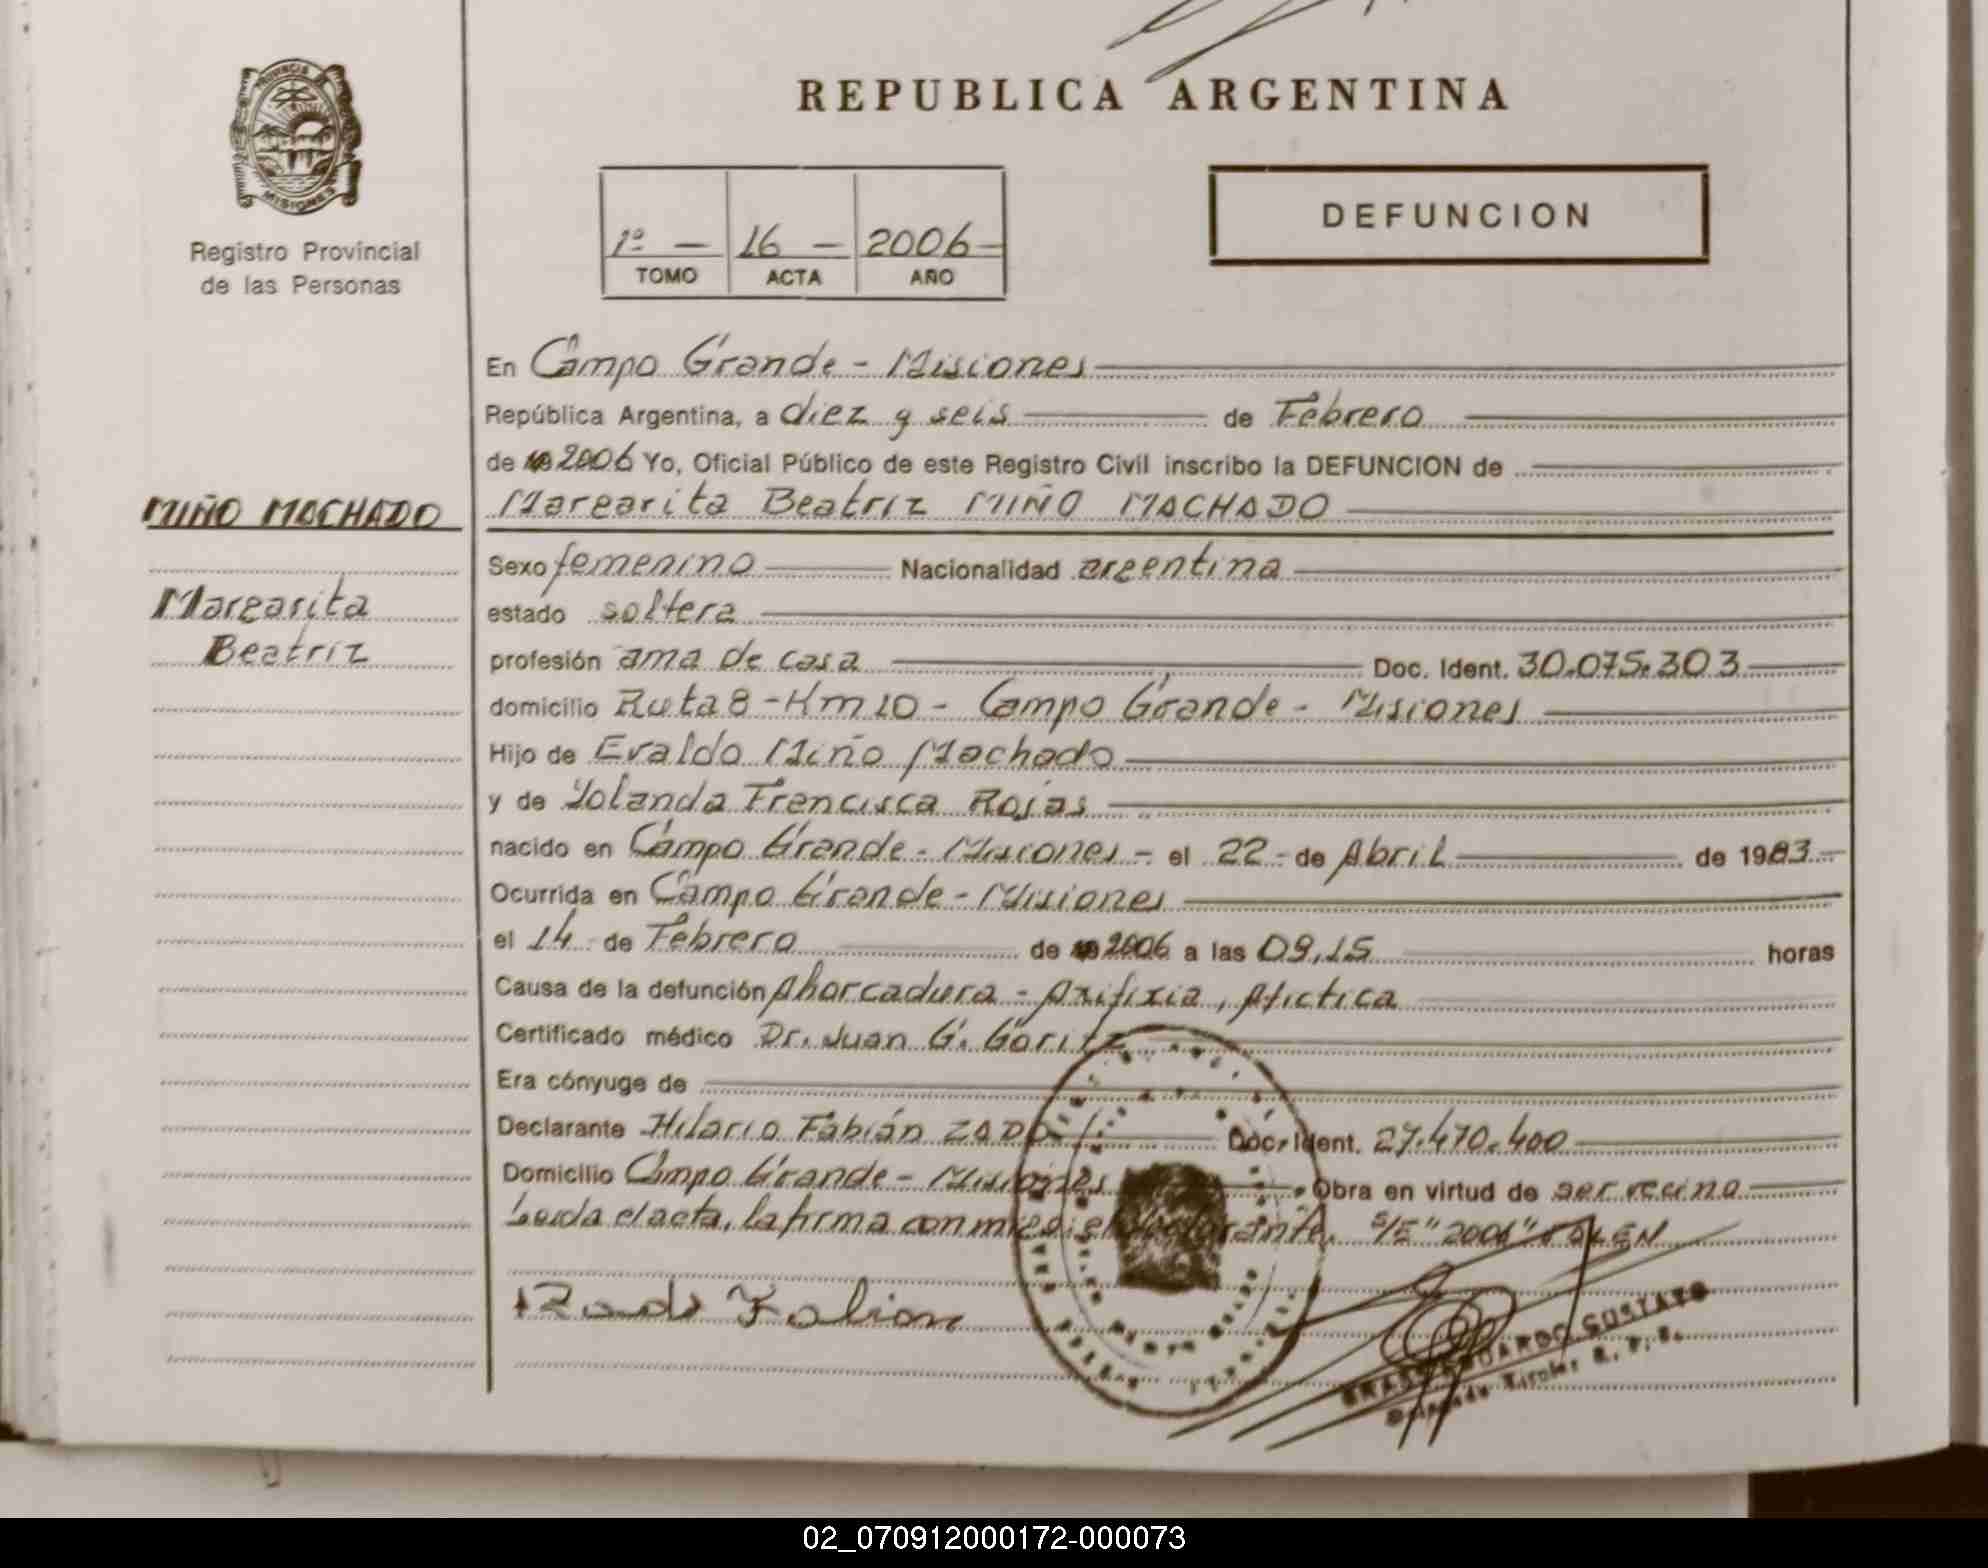 REPUBLICA ARGENTINA
PROVINCIA
MISIONES
Registro Provincial
de las Personas
1º — 16 — 2006 —
TOMO ACTA AÑO
DEFUNCION
En Campo Grande - Misiones
República Argentina, a diez y seis de Febrero
de 19 2006 Yo, Oficial Público de este Registro Civil inscribo la DEFUNCION de
MIÑO MACHADO
Margarita Beatriz MIÑO MACHADO
Sexo femenino Nacionalidad argentina
Margarita
estado soltera
Beatriz
profesión ama de casa Doc. Ident. 30.075.303
domicilio Ruta 8 - Km 10 - Campo Grande - Misiones
Hijo de Evaldo Miño Machado
y de Yolanda Francisca Rojas
nacido en Campo Grande - Misiones - el 22 - de Abril de 1983
Ocurrida en Campo Grande - Misiones
el 14 - de Febrero de 19 2006 a las 09,15 horas
Causa de la defunción Ahorcadura - Axifixia, Afictica
Certificado médico Dr. Juan G. Goritz
Era cónyuge de
Declarante Hilario Fabián Doc. Ident. 27.470.400
Domicilio Campo Grande - Misiones Obra en virtud de ser vecino
Leida el acta, la firma conmigo el declarante. S/E "2006" VALEN
Fabian
EDUARDO GUSTAVO
Delegado Titular R. P. P.
02_070912000172-000073